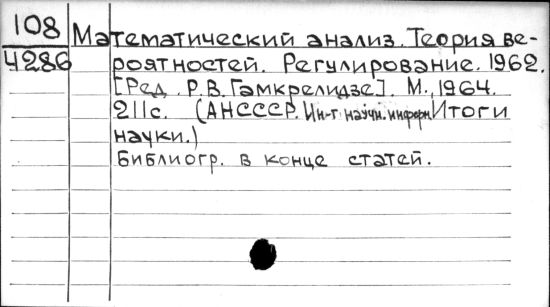 108
4286
Математический анализ. Теория ве-
роятностей. Регулирование. 1962.
[Ред. Р.В. Гамкрелидзе]. М., 1964.
211с. (АНСССР. Ин-т научн. информ. Итоги
науки.)
Библиогр. в конце статей.